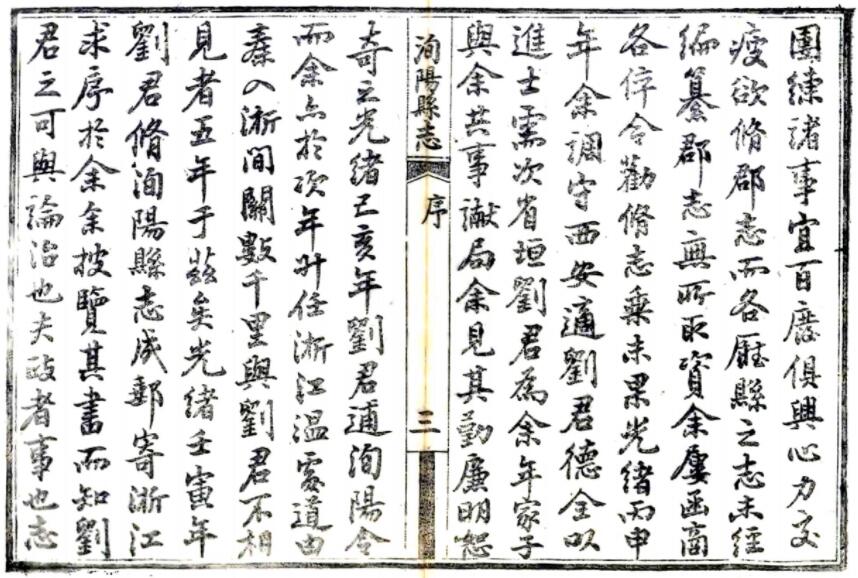 團練諸事宜百廢俱興心力交
瘦欲脩郡志而各廳縣之志未經
編纂郡志無所取資余屢函商
各倅令勸脩志乘未果光緒丙申
年余調守西安適劉君德全以
進士需次省垣劉君爲余年家子
與余共事讞局余見其勤廉明恕
洵陽縣志 序 三
奇之光緒己亥年劉君補洵陽令
而余亦於次年升任浙江溫處道由
秦入浙間關數千里與劉君不相
見者五年于茲矣光緒壬寅年
劉君脩洵陽縣志成郵寄浙江
求序於余余披覽其書而知劉
君之可與論治也夫政者事也志